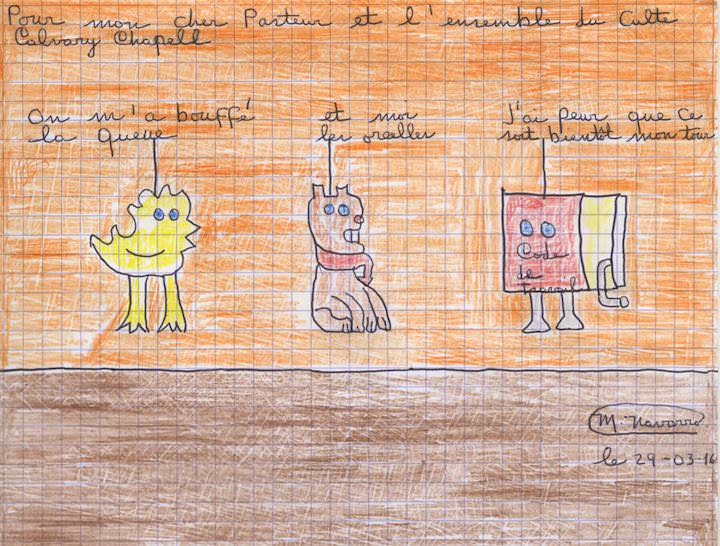 Pour mon cher Pasteur et l'ensemble du Culte
Calvary Chapell
On m'a bouffé
la queue
et moi
les oreilles
J'ai peur que ce
soit bientôt mon tour
Code
de
travail
M. Navarro
le 29-03-16